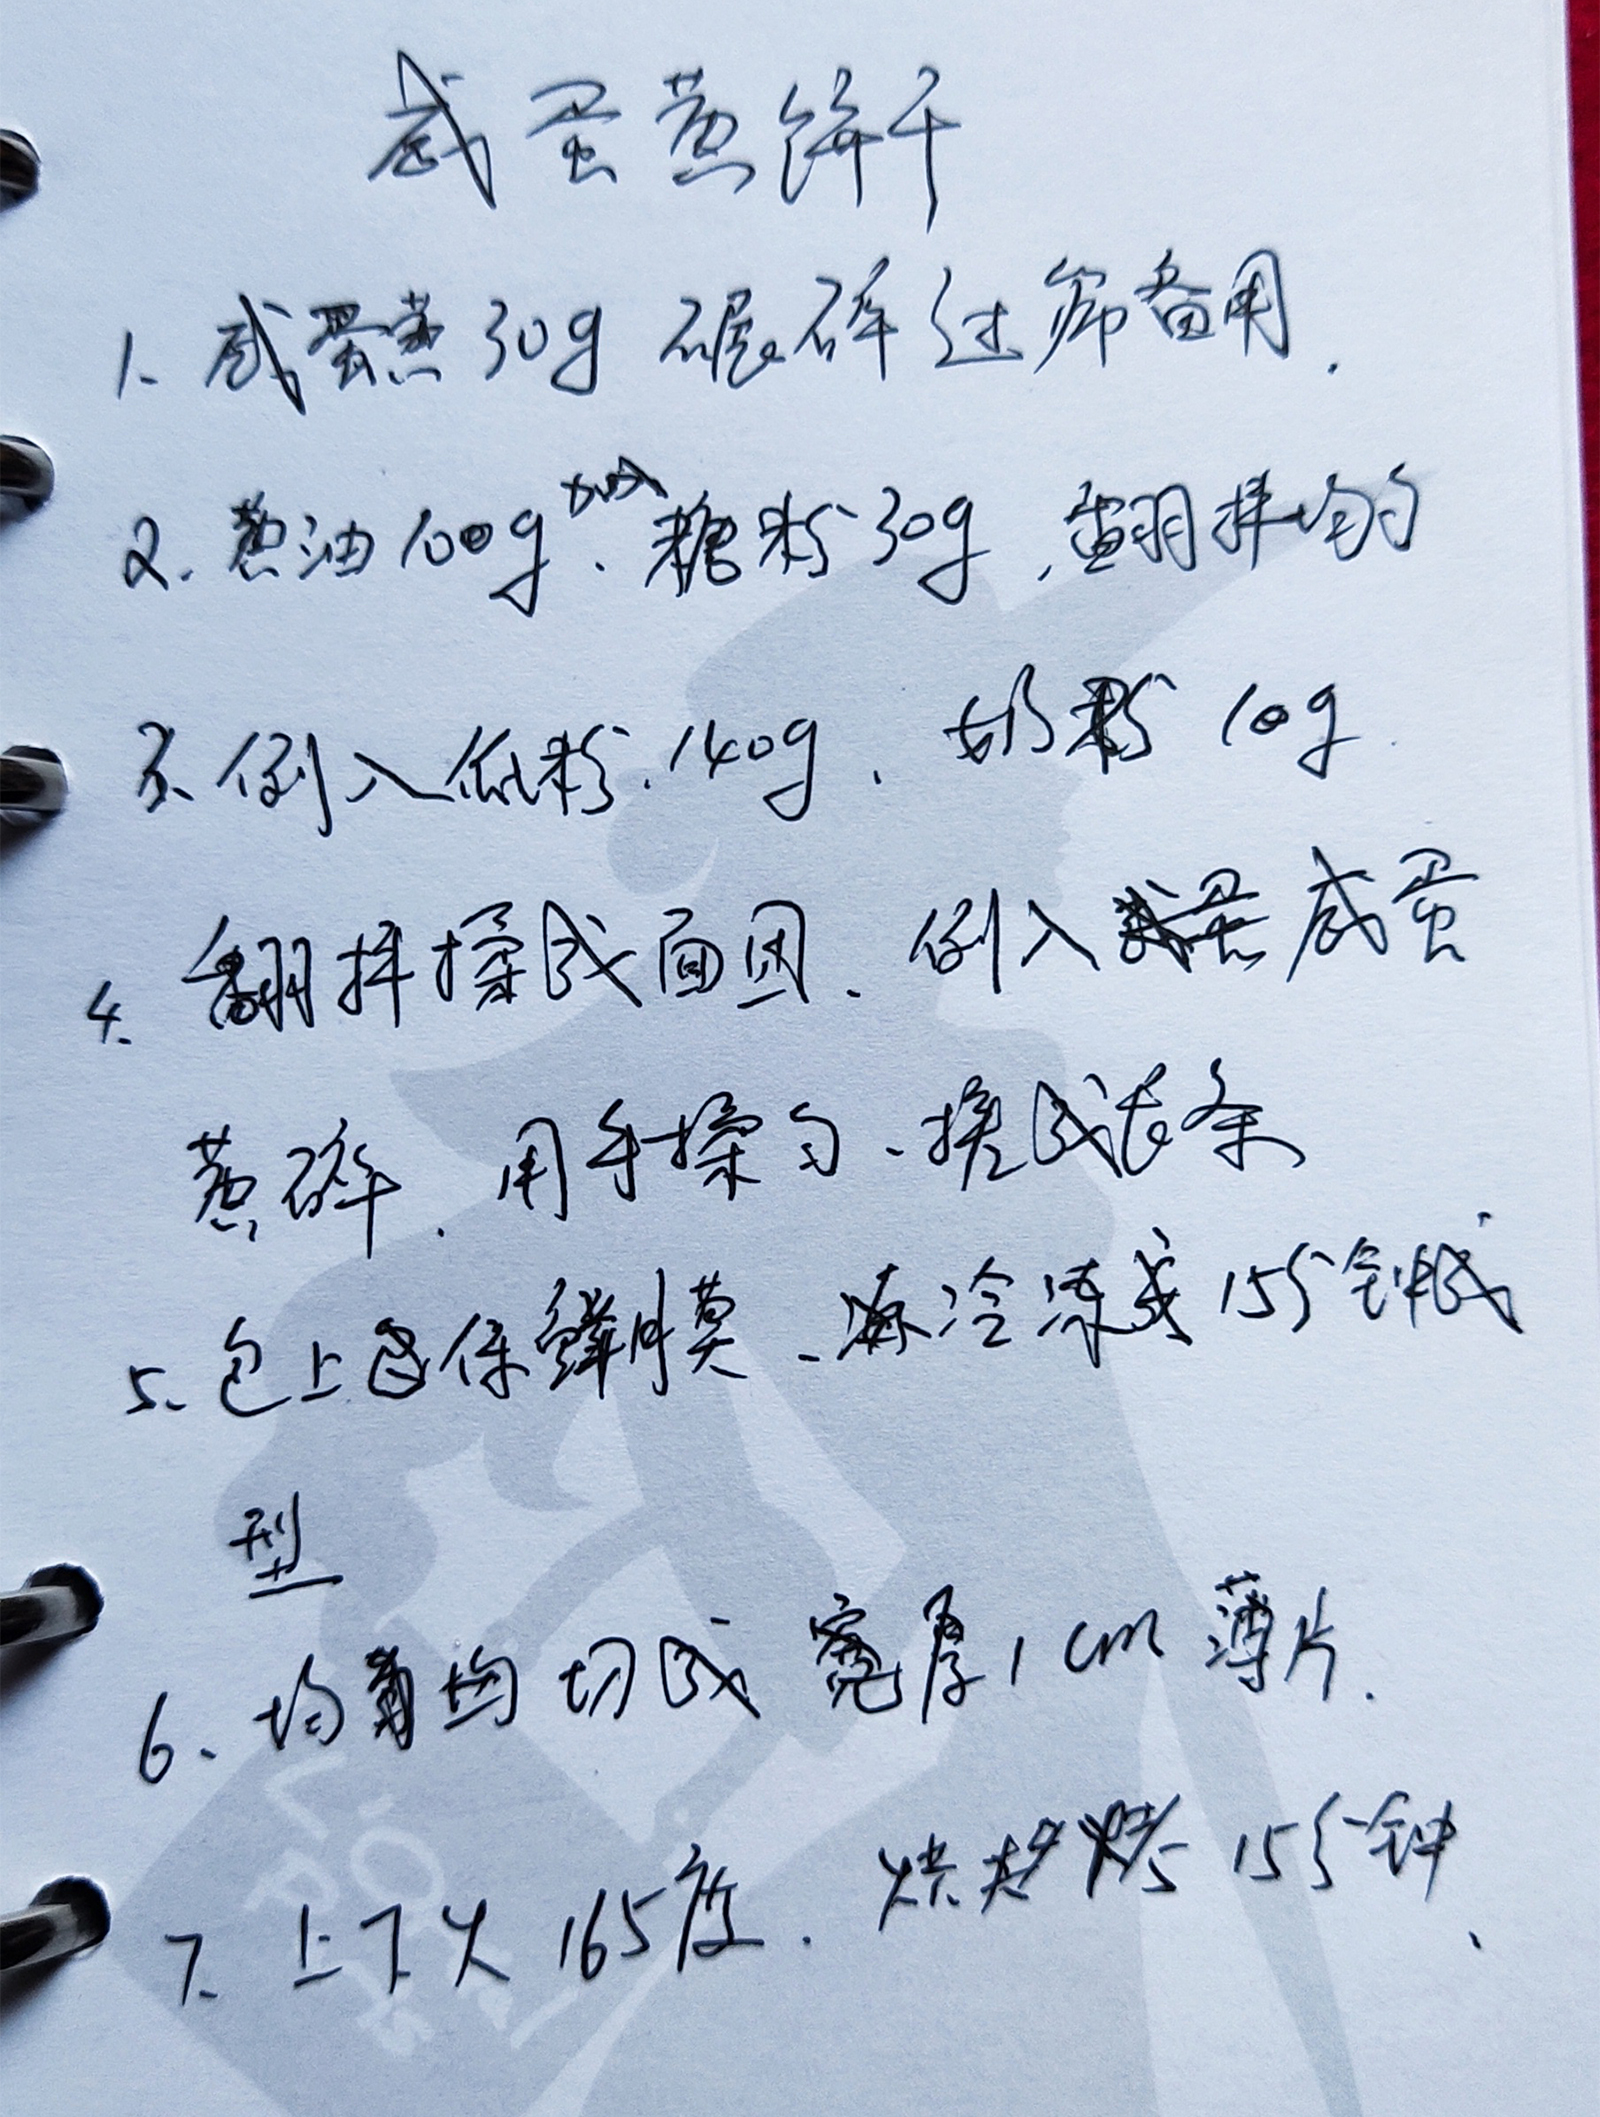 咸蛋黄饼干
1、咸蛋黄30g 碾碎过筛备用.
2、黄油100g、加入糖粉30g,翻拌均匀
3、倒入低粉、140g、奶粉10g
4、翻拌揉成面团、倒入咸蛋
黄碎、用手揉匀、搓成长条
5、包上保鲜膜、冷冻 15分钟成
型
6、均匀切成 厚1cm薄片.
7、上下火165度、烘烤15分钟、